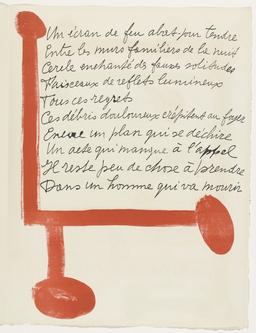 Un écran de feu abat pour tendre
Entre les murs familiers de la nuit
Cercle enchanté des fausses solitudes
Faisceaux de reflets lumineux
Tous ces regrets
Ces débris douloureux crépitent au foyer
Encore un plan qui se déchire
Un acte qui manque à l'appel
Il reste peu de chose à prendre
Dans un homme qui va mourir